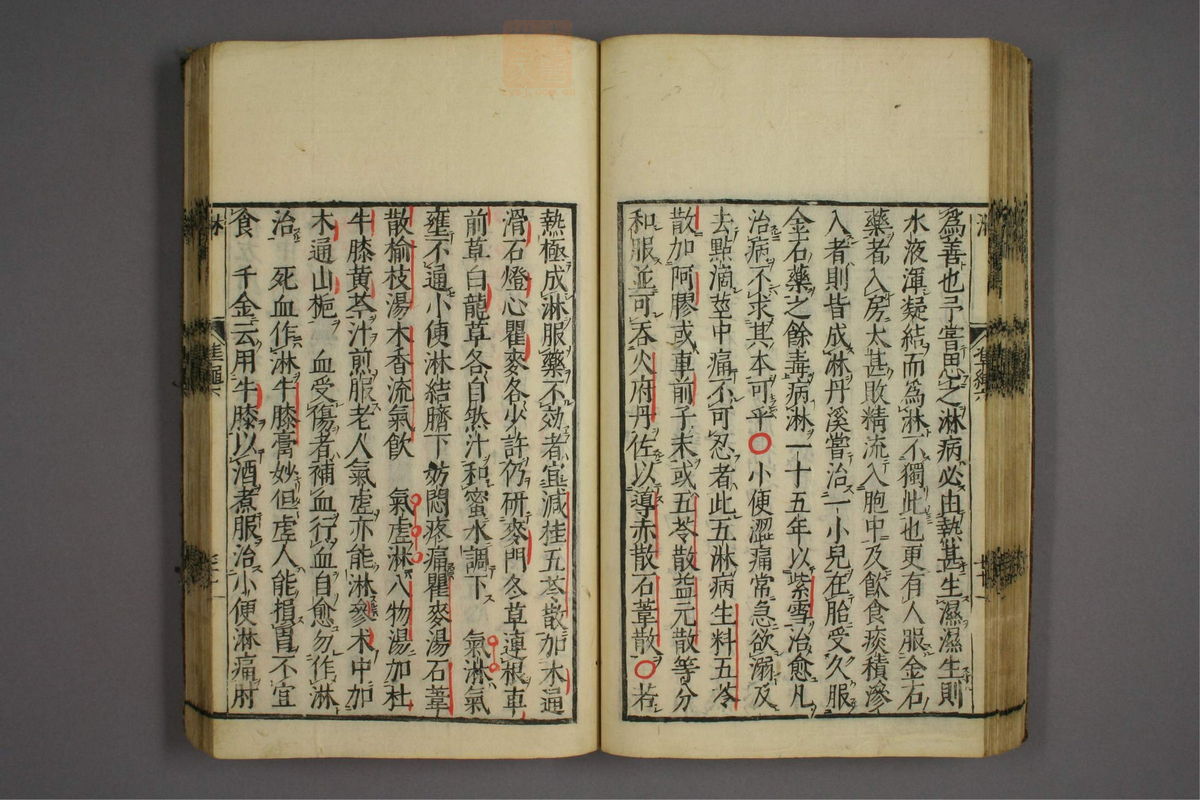 爲善也予嘗思之淋病必由熱甚生濕濕生則
水液渾凝結而爲淋不獨此也更有人服金石
藥者入房太甚敗精流入胞中及飲食痰積滲
入者則皆成淋丹溪嘗治一小兒在胎受久服
金石藥之餘毒病淋一十五年以紫雪治愈凡
治病不求其本可乎○小便澀痛常急欲溺及
去點滴莖中痛不可忍者此五淋病生料五苓
散加阿膠或車前子末或五苓散益元散等分
和服並可吞火府丹佐以導赤散石葦散○若
熱極成淋服藥不效者宜減桂五苓散加木通
滑石燈心瞿麥各少許仍研麥門冬草連根車
前草白龍草各自然汁和蜜水調下 氣淋氣
壅不通小便淋結臍下妨悶疼痛瞿麥湯石葦
散榆枝湯木香流氣飲 氣虛淋八物湯加杜
牛膝黄芩汁煎服老人氣虛亦能淋參术中加
木通山梔 血受傷者補血行血自愈勿作淋
治 死血作淋牛膝膏妙但虛人能損胃不宜
食 千金云用牛膝以酒煮服治小便淋痛肘
淋